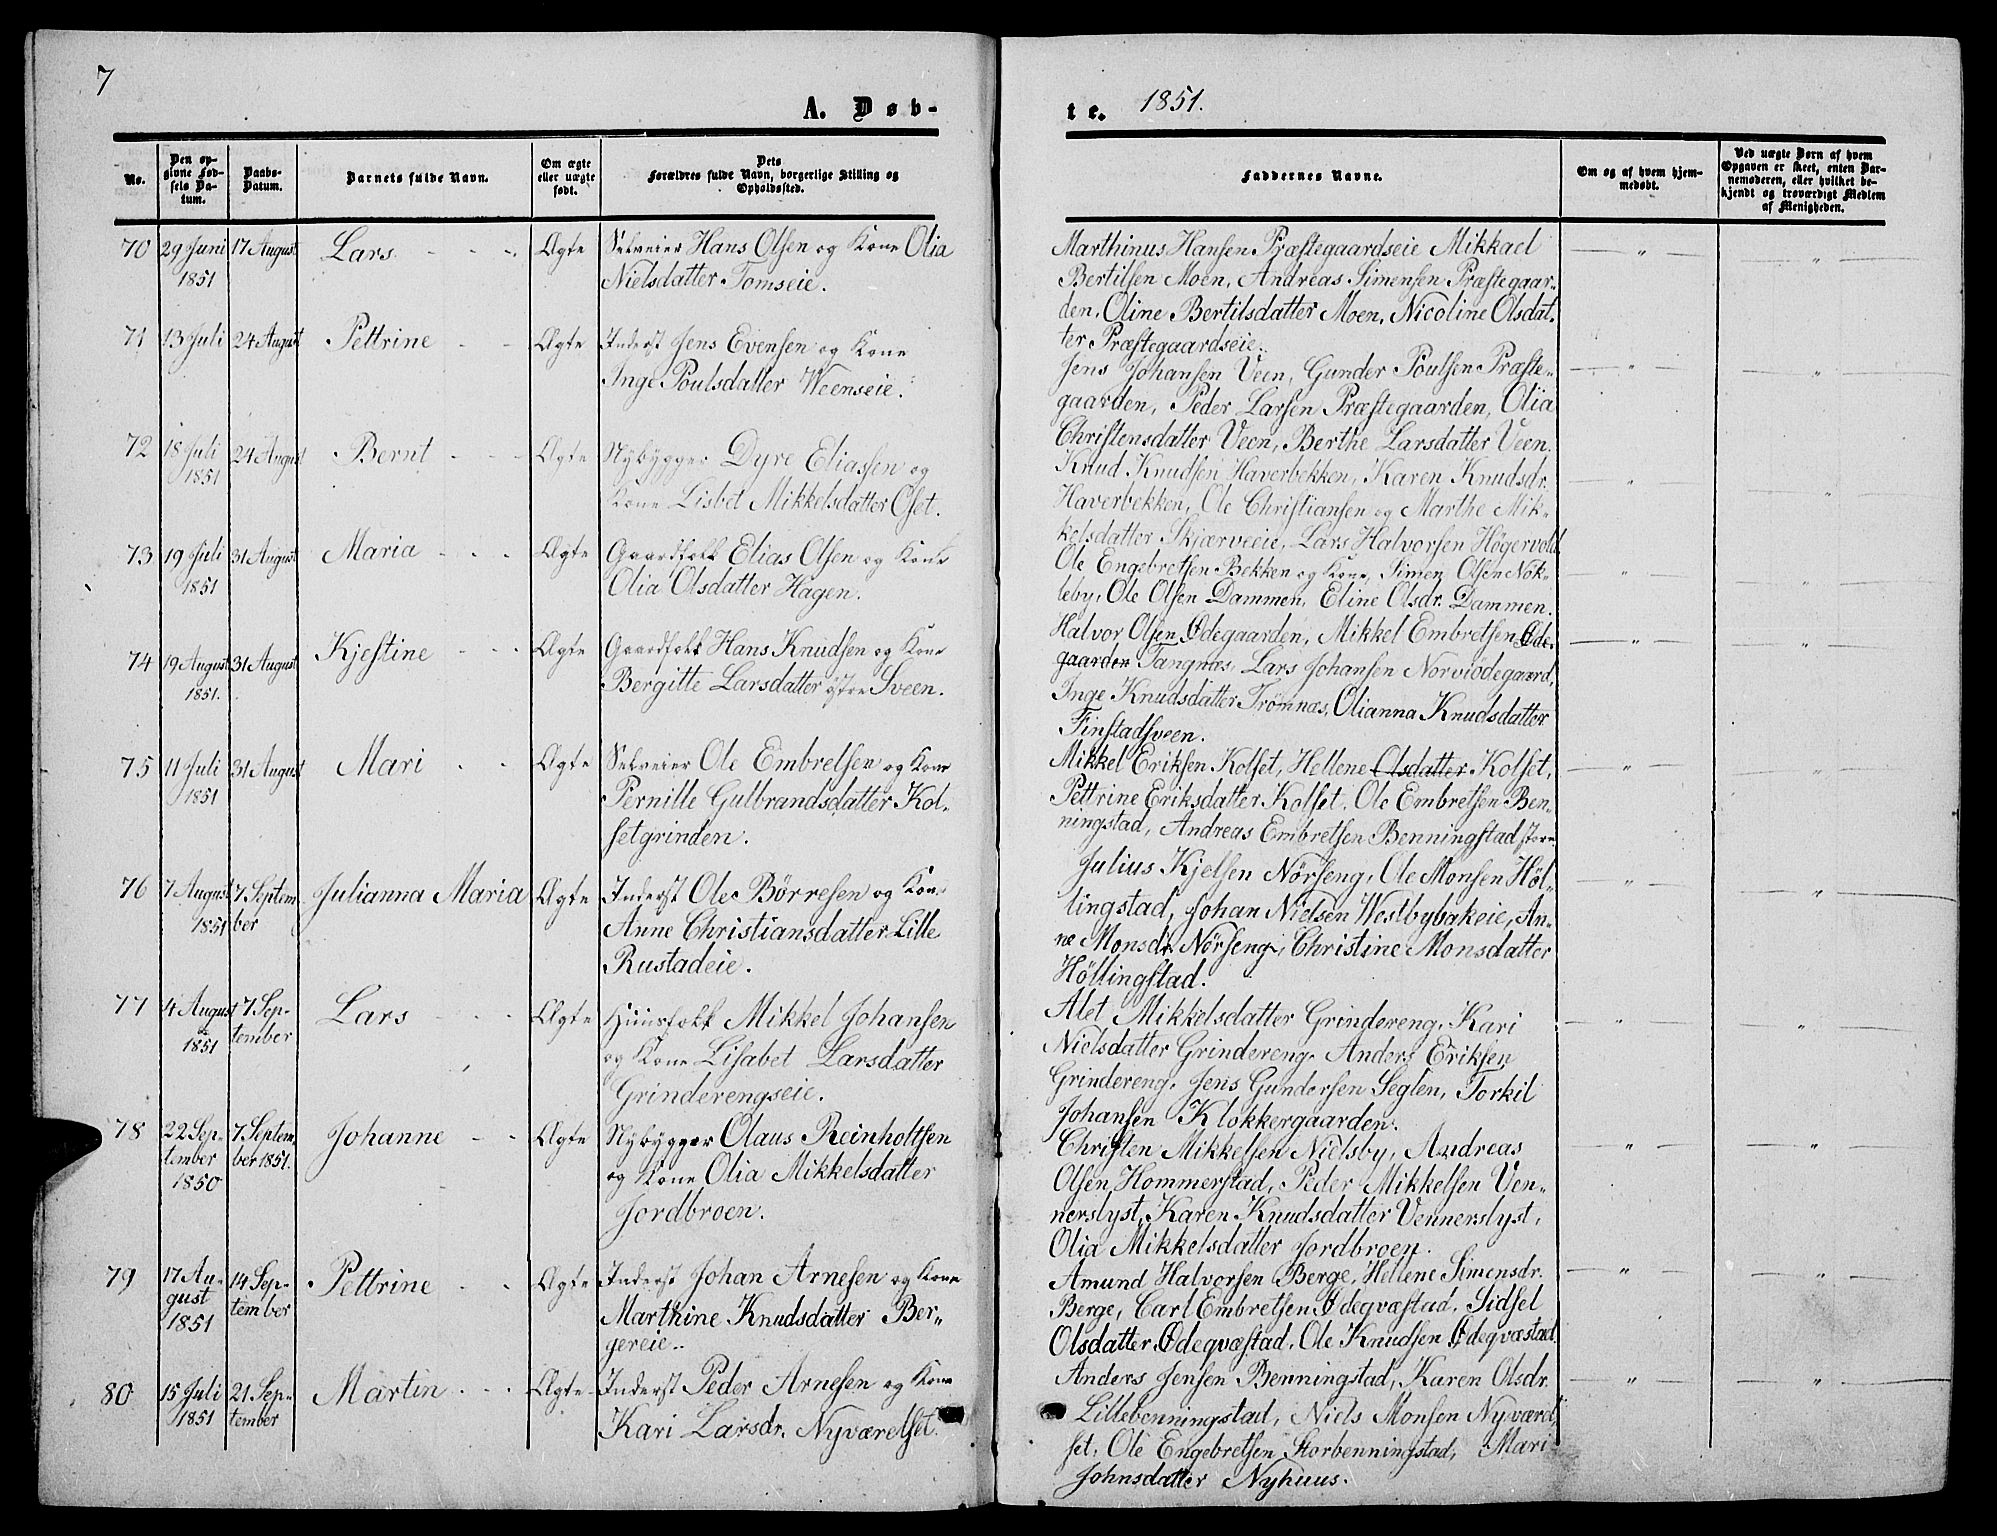 7
A. Døb-
te. 1851.
No.
Den op-
givne Fød-
sels Da-
tum.
Daabs-
Datum.
Barnets fulde Navn.
Om ægte
eller uægte
født.
Dets
Forældres fulde Navn, borgerlige Stilling og
Opholdssted.
Faddernes Navne.
Om og af hvem hjem-
medøbt.
Ved uægte Børn af hvem
Opgaven er skeet, enten Bar-
nemoderen, eller hvilket be-
kjendt og troværdigt Medlem
af Menigheden.
70 29 Juni 17 August Lars Ægte Selveier Hans Olsen og Kone Olia
1851 Nielsdatter Tomseie.
Marthinus Hansen Præstegaardseie Mikkael
Bertilsen Moen, Andreas Simensen Præstegaar-
den, Oline Bertilsdatter Moen, Nicoline Olsdat-
ter Præstegaardseie.
71 13 Juli 24 August Pettrine Ægte Inderst Jens Evensen og Kone
Inge Poulsdatter Weenseie.
Jens Johansen Veen, Gunder Poulsen Præste-
gaarden, Peder Larsen Præstegaarden, Olia
Christensdatter Veen, Berthe Larsdatter Veen.
72 18 Juli 24 August Bernt Ægte Nybygger Dyre Eliassen og
1851 Kone Lisbet Mikkelsdatter Oset.
Knud Knudsen Haverbekken, Karen Knudsdr.
Haverbekken, Ole Christiansen og Marthe Mik-
kelsdatter Skjærveeie, Lars Halvorsen Högervold
73 19 Juli 31 August Maria Ægte Gaardfolk Elias Olsen og Kone
1851 Olia Olsdatter Hagen.
Ole Engebretsen Bekken og Kone, Simen Olsen Nök-
leby, Ole Olsen Dammen, Eline Olsdr. Dammen.
74 19 August 31 August Kjestine Ægte Gaardfolk Hans Knudsen og Kone
1851. Bergitte Larsdatter østre Sveen.
Halvor Olsen Ødegaarden, Mikkel Embretsen Øde-
gaarden Tangnæs, Lars Johansen Norviödegaard,
Inge Knudsdatter Trömnæs, Olianna Knudsdatter
Finstadsveen.
75 11 Juli 31 August Mari Ægte Selveier Ole Embretsen og Kone
1851 Pernille Gulbrandsdatter Kol-
setgrinden.
Mikkel Eriksen Kolset, Hellene Olsdatter Kolset,
Pettrine Eriksdatter Kolset, Ole Embretsen Ben-
ningstad, Andreas Embretsen Benningstad store
76 7 August 7 Septem Julianna Maria Ægte Inderst Ole Børresen og Kone
1851 ber Anne Christiansdatter Lille
Rustadeie.
Julius Kjelsen Nörseng, Ole Monsen Höl-
lingstad, Johan Nielsen Westbybakeie, An-
ne Monsdr. Nörseng, Christine Monsdatter
Höllingstad.
77 4 August 7 Sep- Lars Ægte Huusfolk Mikkel Johansen
1851 tember og Kone Lisabet Larsdatter
Grinderengseie.
Alet Mikkelsdatter Grindereng, Kari
Nielsdatter Grindereng, Anders Eriksen
Grindereng, Jens Gundersen Seglen, Torkil
Johansen Klokkergaarden.
78 22 Sep- 7 Septem Johanne Ægte Nybygger Olaus Reinholtsen
tember ber 1851. og Kone Olia Mikkelsdatter
1850 Jordbroen.
Christen Mikkelsen Nielsby, Andreas
Olsen Hommerstad, Peder Mikkelsen Ven-
nerslyst, Karen Knudsdatter Vennerslyst,
Olia Mikkelsdatter Jordbroen.
79 17 Au- 14 Sep- Pettrine Ægte Inderst Johan Arnesen og Kone
gust tember Marthine Knudsdatter Ber-
1851 gereie.
Amund Halvorsen Berge, Hellene Simensdr.
Berge, Carl Embretsen Ødeqvæstad, Sidsel
Olsdatter Ødeqvæstad, Ole Knudsen Ødeqvæstad.
80 15 Juli 21 Sep- Martin Ægte Inderst Peder Arnesen og Kone
1851 tember Kari Larsdr. Nyværelset.
Anders Jensen Benningstad, Karen Olsdr.
Lillebenningstad, Niels Monsen Nyværel-
set, Ole Engebretsen Storbenningstad, Mari
Johnsdatter Nyhuus.